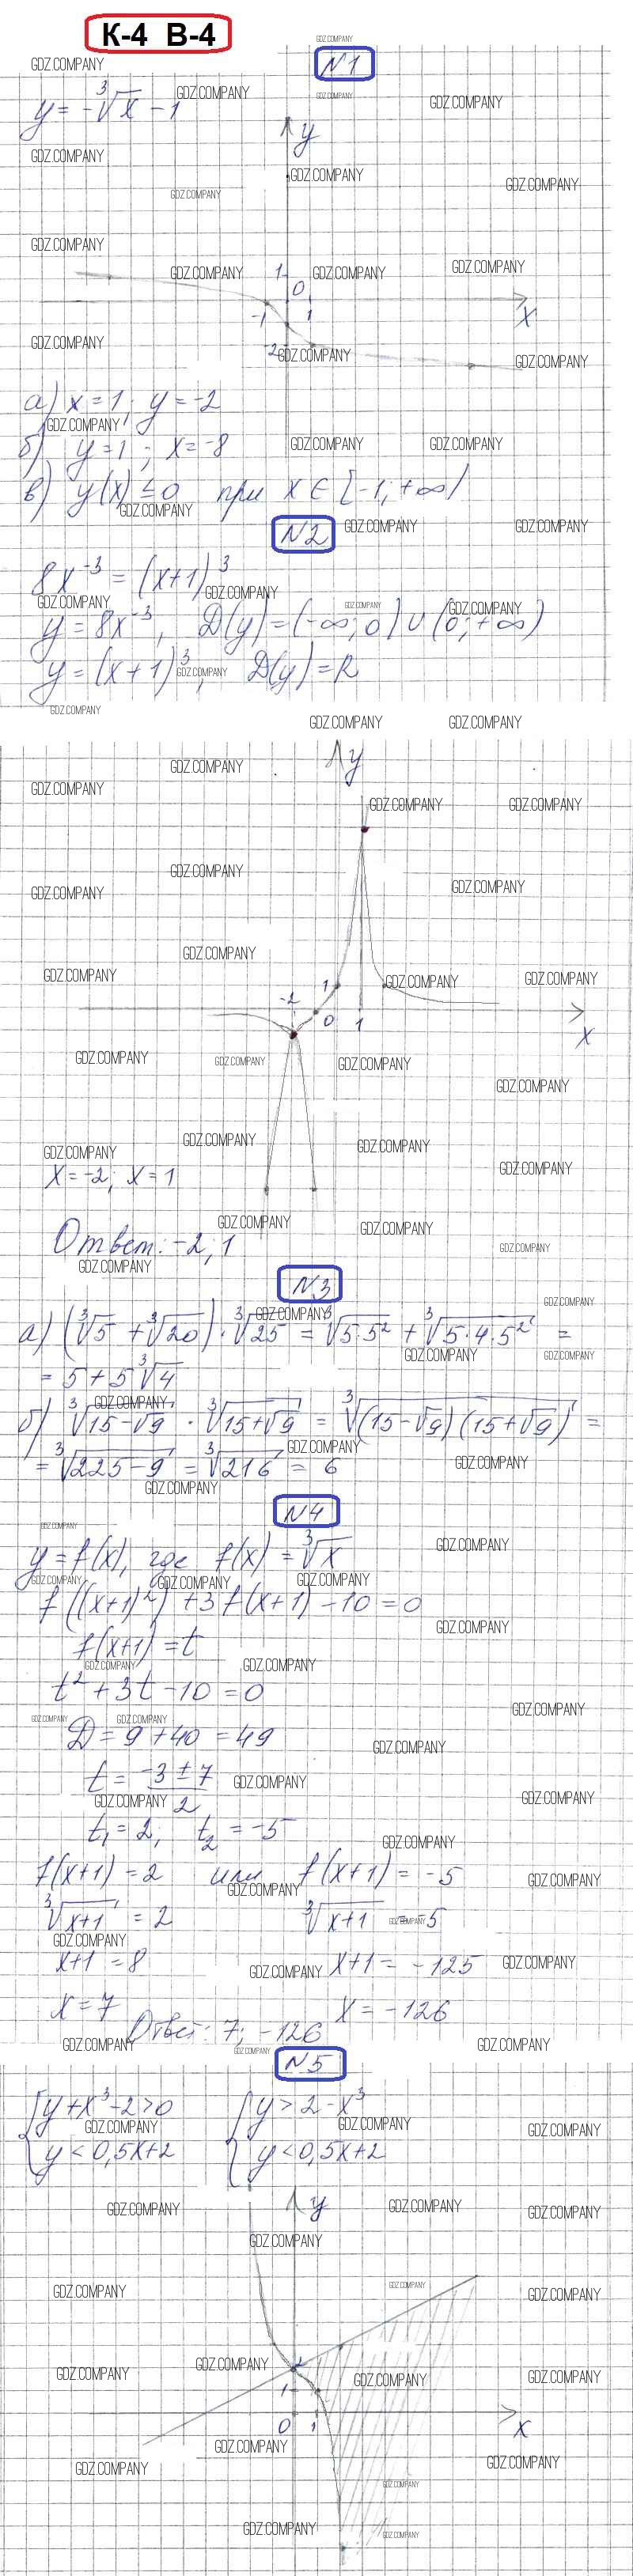 К-4 В-4
N1
y = -∛x - 1
y
1
0
-1
1
x
-2
а) x = 1; y = -2
б) y = 1; x = -8
в) y(x) ≤ 0 при x ∈ [-1; +∞)
N2
8x⁻³ = (x+1)³
y = 8x⁻³, D(y) = (-∞; 0) ∪ (0; +∞)
y = (x+1)³, D(y) = R
y
1
-2
0
1
x
x = -2; x = 1
Ответ: -2; 1
N3
а) (∛5 + ∛20) · ∛25 = ∛5·5² + ∛5·4·5² =
= 5 + 5∛4
б) ∛15-√9 · ∛15+√9 = ∛(15-√9)(15+√9) =
= ∛225-9 = ∛216 = 6
N4
y = f(x), где f(x) = ∛x
f((x+1)²) + 3f(x+1) - 10 = 0
f(x+1) = t
t² + 3t - 10 = 0
D = 9 + 40 = 49
t = (-3 ± 7)/2
t₁ = 2; t₂ = -5
f(x+1) = 2 или f(x+1) = -5
∛x+1 = 2 ∛x+1 = -5
x+1 = 8 x+1 = -125
x = 7 x = -126
Ответ: 7; -126
N5
{y + x³ - 2 > 0 {y > 2 - x³
{y < 0,5x + 2 {y < 0,5x + 2
y
2
1
0
1
x
GDZ.COMPANY